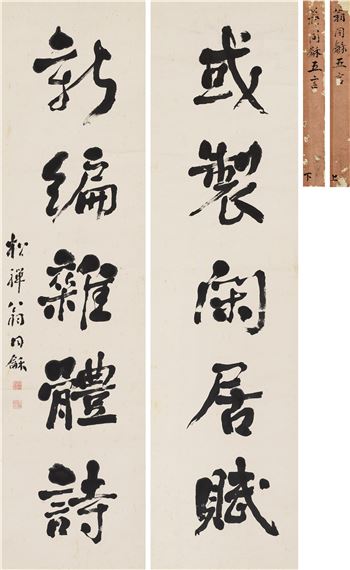 或製閑居賦
新編雜體詩
松禪翁同龢
翁同龢五言 上
翁同龢五言 下